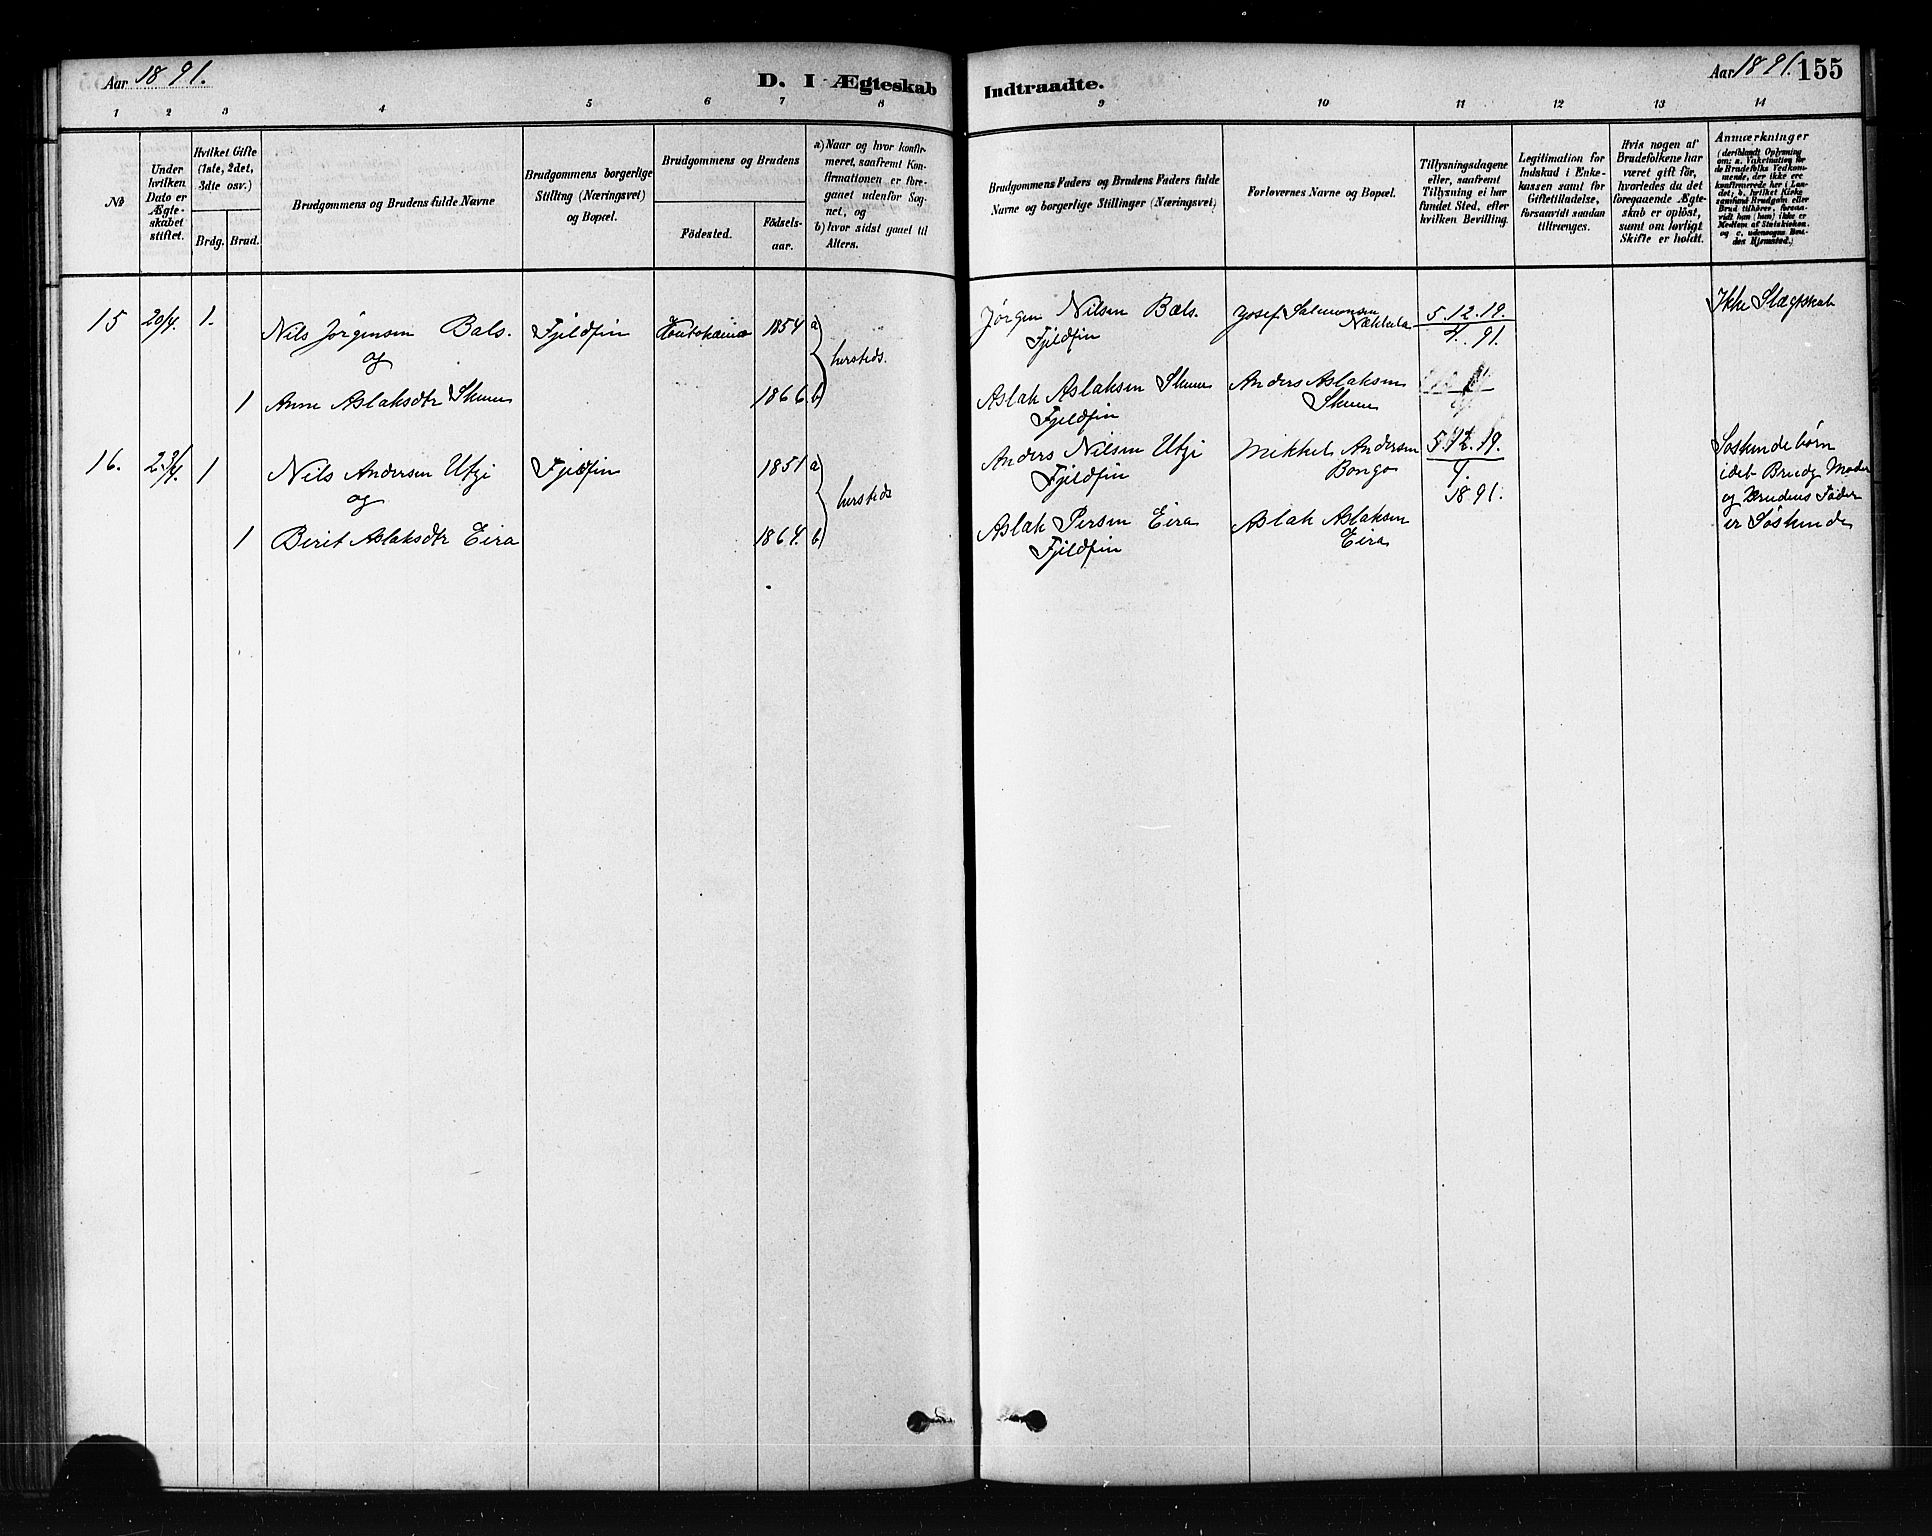 Aar 1891.
D. I Ægteskab
Indtraadte.
Aar 1891. 155
1 2 3 4 5 6 7 8 9 10 11 12 13 14
No
Under hvilken Dato er Ægteskabet stiftet.
Hvilket Gifte (1ste, 2det, 3die osv.)
Brdg. Brud.
Brudgommens og Brudens fulde Navne
Brudgommens borgerlige Stilling (Næringsvei) og Bopæl.
Brudgommens og Brudens
Födested.
Födsels-aar.
a) Naar og hvor konfirmeret, saafremt Konfirmationen er foregaaet udenför Sognet, og
b) hvor sidst gaaet til Alters.
Brudgommens Faders og Brudens Faders fulde Navne og borgerlige Stillinger (Næringsvei)
Forlovernes Navne og Bopæl.
Tillysningsdagene eller, saafremt Tillysning ei har fundet Sted, efter hvilken Bevilling.
Legitimation for Indskud i Enkekassen samt for Giftetilladelse, forsaavidt saadan tiltrænges.
Hvis nogen af Brudefolkene har været gift för, hvorledes da det foregaaende Ægteskab er oplöst, samt om lovligt Skifte er holdt.
Anmærkninger
(deriblandt Oplysning om: a. Vakcination for de Brudefolks Vedkommende, der ikke ere konfirmerede her i Landet; b. hvilket Kirkesamfund Brudgom eller Brud tilhörer, forsaavidt han (hun) ikke er Medlem af Statskirken, og c. udensogns Brudes Hjemsted.)
15 20/4. 1. Nils Jørgensen Bals. Fjeldfin Koutokeino 1854 a) Jørgen Nilsen Bals. Josef Salmonsen Nækkela 5.12.19. Ikke Slægtskab
og hersteds. Fjeldfin 4. 91.
1 Anne Aslaksdtr Skum 1866. b) Aslak Aslaksen Skum Anders Aslaksen
Fjeldfin Skum
16. 23/4. 1 Nils Andersen Utsi Fjeldfin 1851 a) Anders Nilsen Utsi Mikkel Andersen 5.12.19. Søskendebørn
og hersteds Fjeldfin Bongo 4. idet Brudg. Moder
1891. og Brudens Fader
1 Berit Aslaksdtr Eira 1864. b) Aslak Persen Eira Aslak Aslaksen er Søskende
Fjeldfin Eira